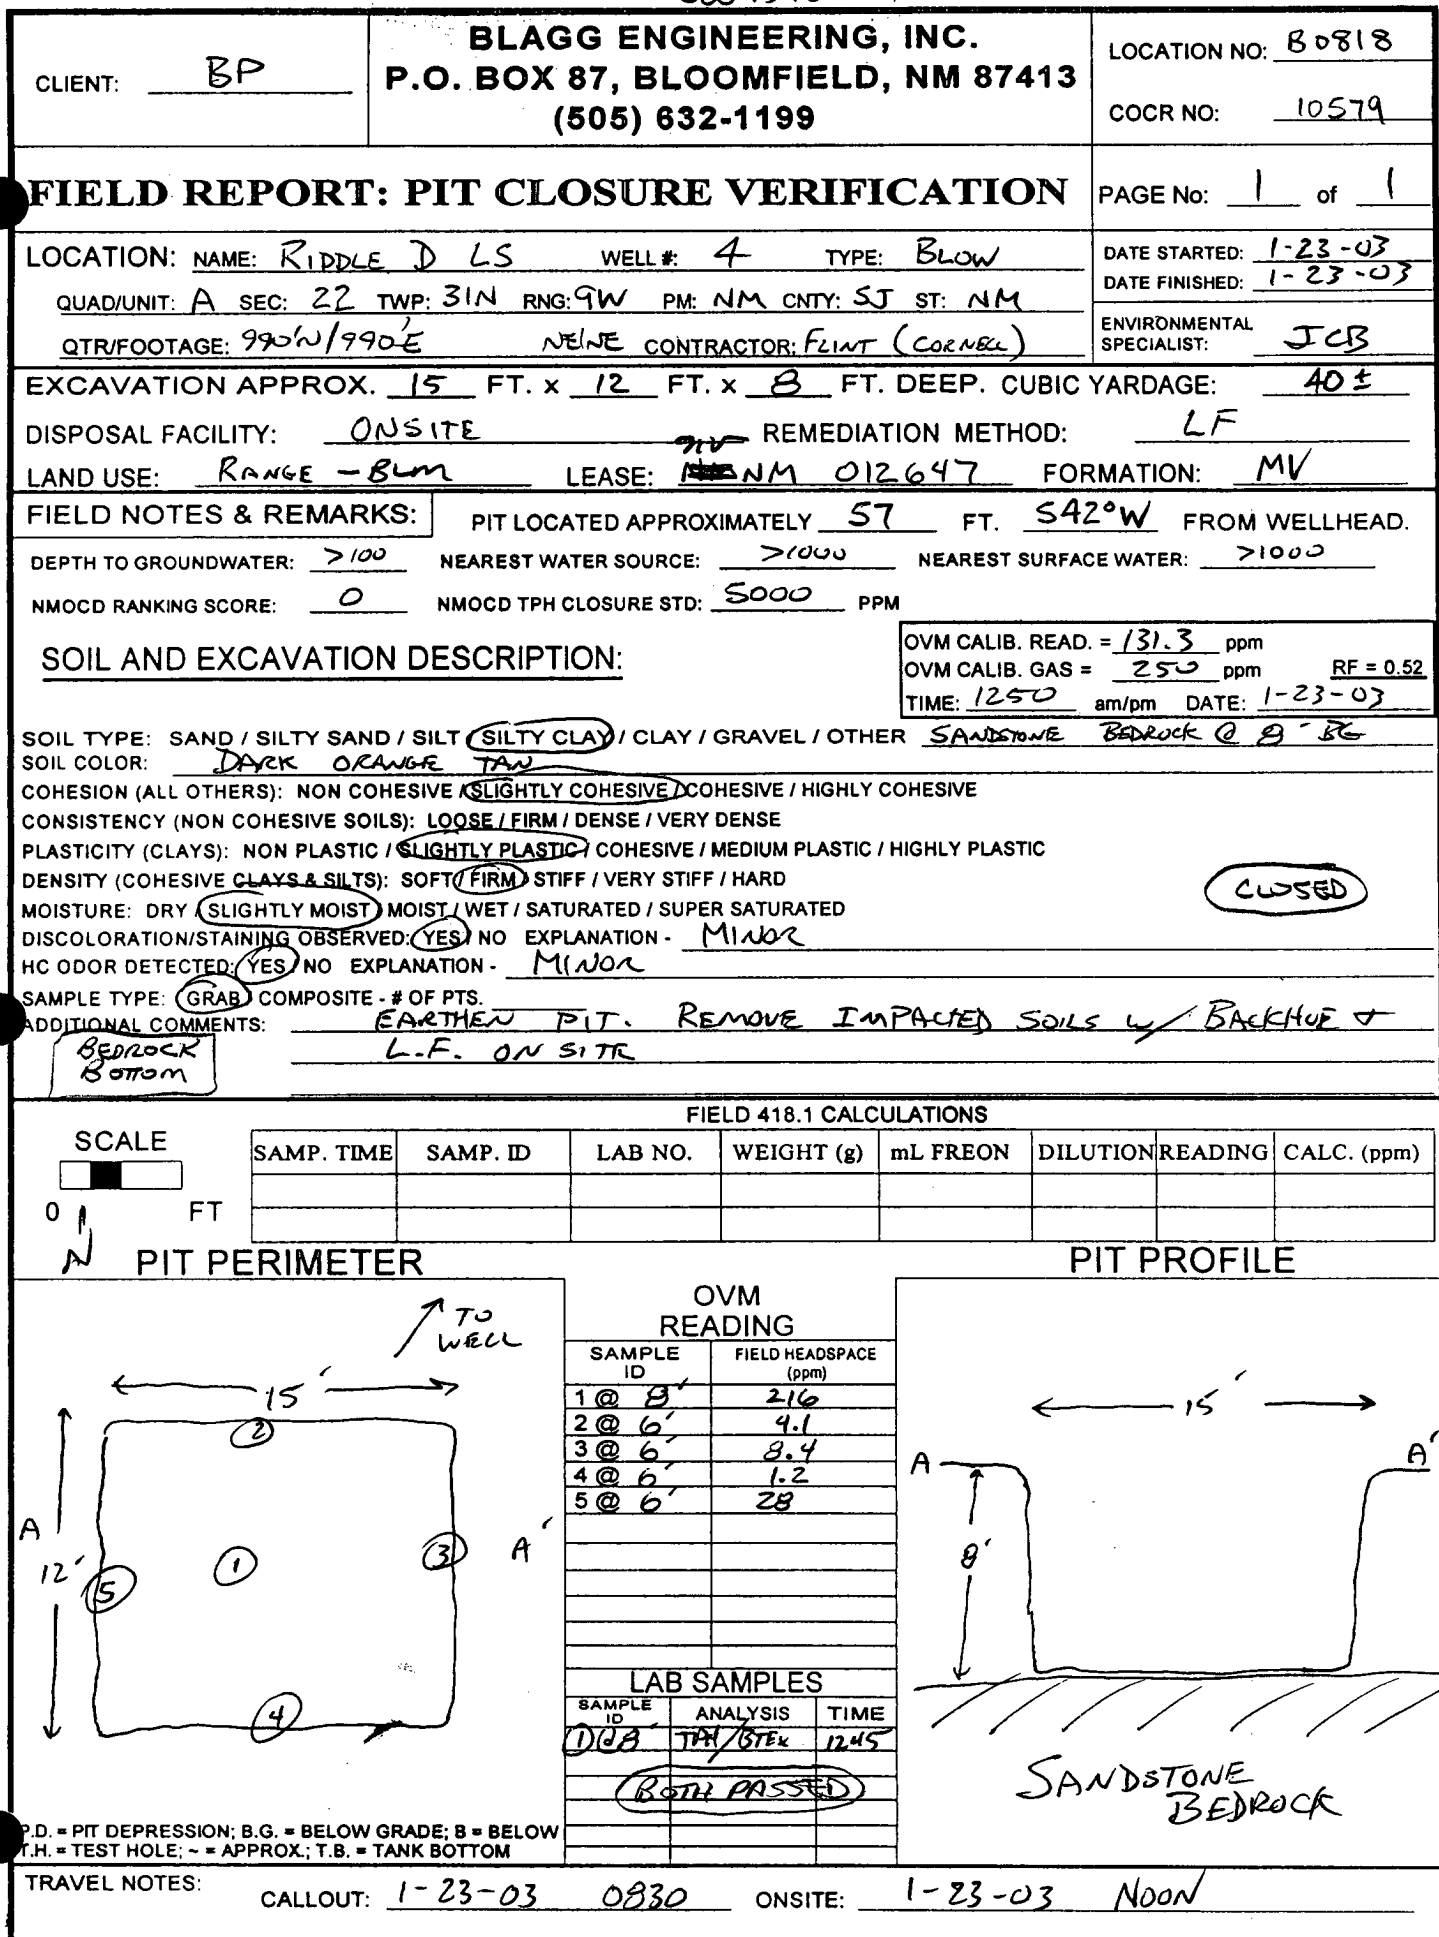 BLAGG ENGINEERING, INC.
P.O. BOX 87, BLOOMFIELD, NM 87413
(505) 632-1199
CLIENT: BP
LOCATION NO: B0818
COCR NO: 10579
FIELD REPORT: PIT CLOSURE VERIFICATION
PAGE No: 1 of 1
LOCATION: NAME: RIDDLE D LS WELL #: 4 TYPE: BLOW
QUAD/UNIT: A SEC: 22 TWP: 31N RNG: 9W PM: NM CNTY: SJ ST: NM
QTR/FOOTAGE: 990'N/990'E NE/NE CONTRACTOR: FLINT (CORNELL)
DATE STARTED: 1-23-03
DATE FINISHED: 1-23-03
ENVIRONMENTAL
SPECIALIST: JCB
EXCAVATION APPROX. 15 FT. x 12 FT. x 8 FT. DEEP. CUBIC YARDAGE: 40 ±
DISPOSAL FACILITY: ONSITE REMEDIATION METHOD: LF
LAND USE: RANGE - BLM LEASE: NM 012647 FORMATION: MV
FIELD NOTES & REMARKS: PIT LOCATED APPROXIMATELY 57 FT. S42°W FROM WELLHEAD.
DEPTH TO GROUNDWATER: >100 NEAREST WATER SOURCE: >1000 NEAREST SURFACE WATER: >1000
NMOCD RANKING SCORE: 0 NMOCD TPH CLOSURE STD: 5000 PPM
SOIL AND EXCAVATION DESCRIPTION:
OVM CALIB. READ. = 131.3 ppm
OVM CALIB. GAS = 250 ppm RF = 0.52
TIME: 1250 am/pm DATE: 1-23-03
SOIL TYPE: SAND / SILTY SAND / SILT / SILTY CLAY / CLAY / GRAVEL / OTHER SANDSTONE BEDROCK @ 8' BG
SOIL COLOR: DARK ORANGE TAN
COHESION (ALL OTHERS): NON COHESIVE / SLIGHTLY COHESIVE / COHESIVE / HIGHLY COHESIVE
CONSISTENCY (NON COHESIVE SOILS): LOOSE / FIRM / DENSE / VERY DENSE
PLASTICITY (CLAYS): NON PLASTIC / SLIGHTLY PLASTIC / COHESIVE / MEDIUM PLASTIC / HIGHLY PLASTIC
DENSITY (COHESIVE CLAYS & SILTS): SOFT / FIRM / STIFF / VERY STIFF / HARD
CLOSED
MOISTURE: DRY / SLIGHTLY MOIST / MOIST / WET / SATURATED / SUPER SATURATED
DISCOLORATION/STAINING OBSERVED: YES / NO EXPLANATION - MINOR
HC ODOR DETECTED: YES / NO EXPLANATION - MINOR
SAMPLE TYPE: GRAB / COMPOSITE - # OF PTS.
ADDITIONAL COMMENTS: EARTHEN PIT. REMOVE IMPACTED SOILS W/ BACKHOE +
L.F. ON SITE
BEDROCK
BOTTOM
FIELD 418.1 CALCULATIONS
SCALE
0 FT
N
SAMP. TIME SAMP. ID LAB NO. WEIGHT (g) mL FREON DILUTION READING CALC. (ppm)
PIT PERIMETER
TO
WELL
15'
2
A
12'
5
1
3
A'
4
OVM
READING
SAMPLE
ID
FIELD HEADSPACE
(ppm)
1 @ 8' 216
2 @ 6' 4.1
3 @ 6' 8.4
4 @ 6' 1.2
5 @ 6' 28
LAB SAMPLES
SAMPLE
ID
ANALYSIS TIME
1@8' TPH/BTEX 1245
BOTH PASSED
PIT PROFILE
15'
A A'
8'
SANDSTONE
BEDROCK
P.D. = PIT DEPRESSION; B.G. = BELOW GRADE; B = BELOW
T.H. = TEST HOLE; ~ = APPROX.; T.B. = TANK BOTTOM
TRAVEL NOTES: CALLOUT: 1-23-03 0830 ONSITE: 1-23-03 NOON